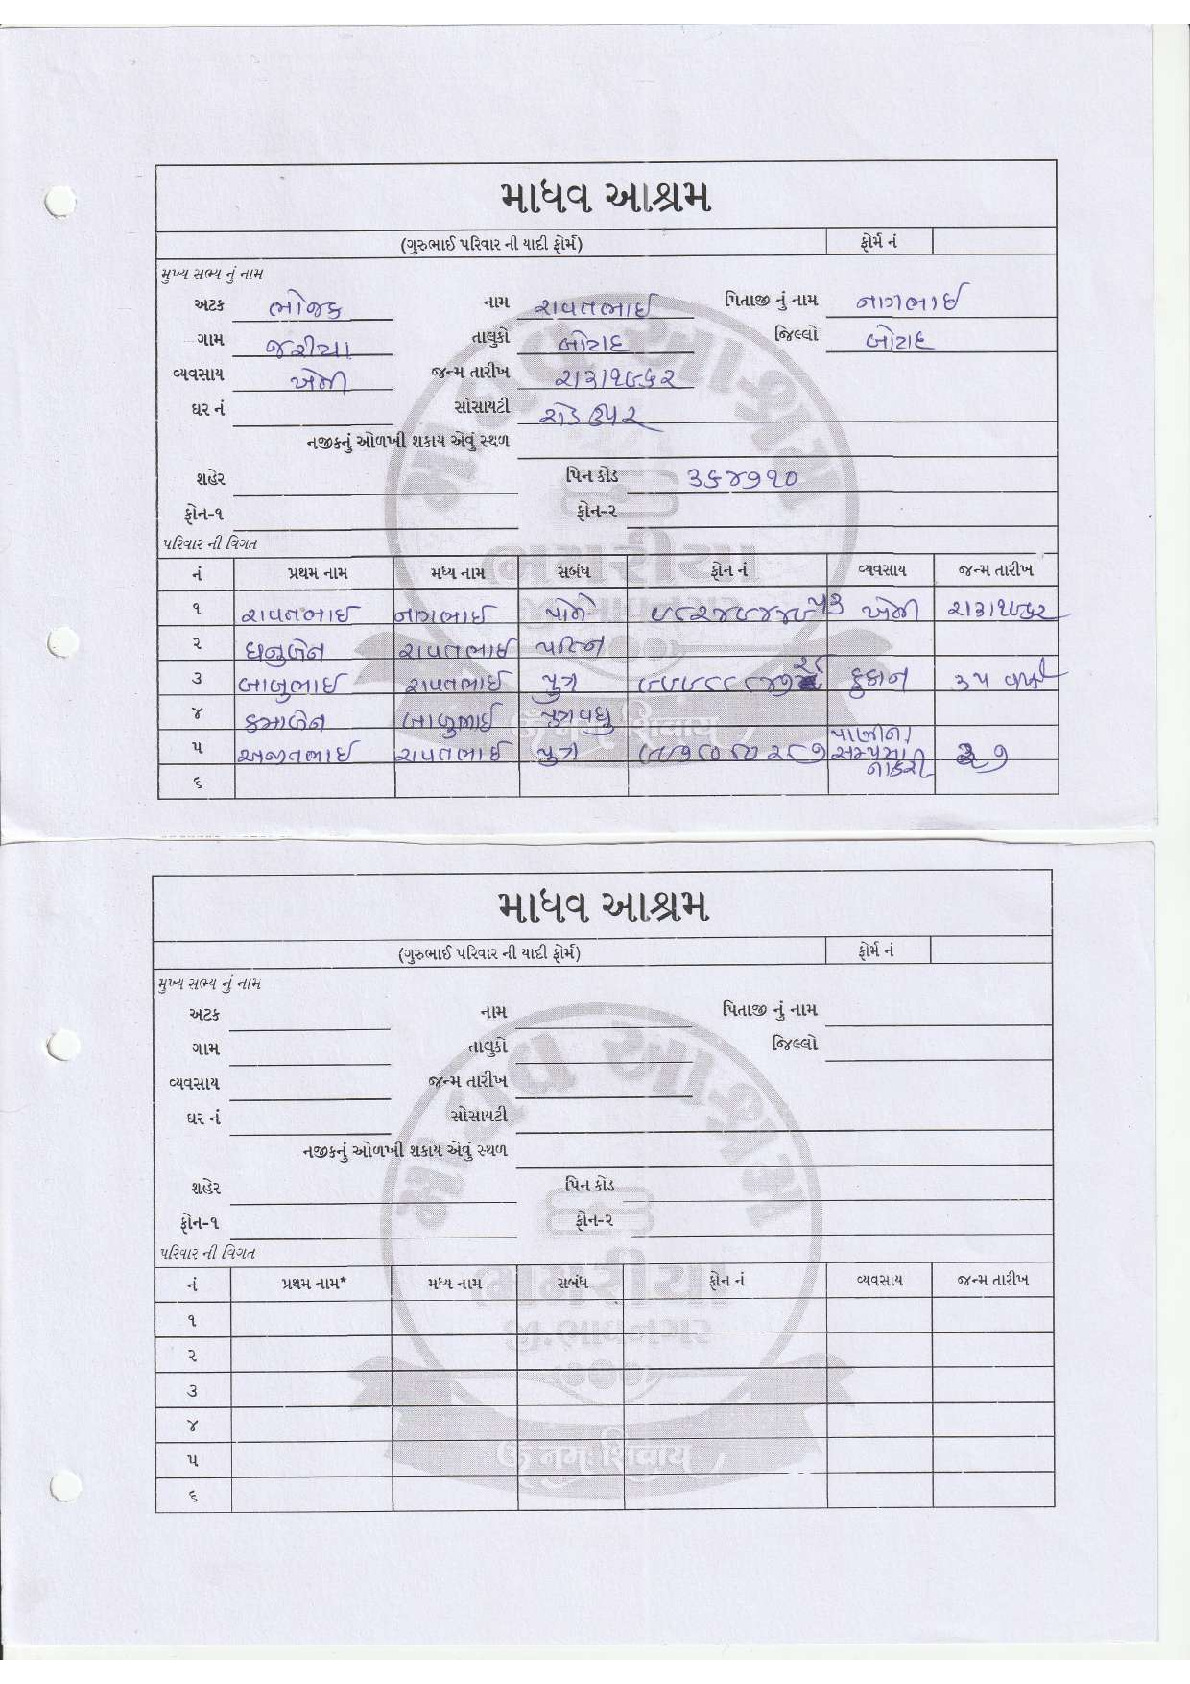 માધવ આશ્રમ
(ગુરુભાઈ પરિવાર ની યાદી ફોર્મ) ફોર્મ નં
મુખ્ય સભ્ય નું નામ
અટક ભોજક નામ રાવતભાઈ પિતાજી નું નામ નાગભાઈ
ગામ જરીયા તાલુકો બોટાદ જિલ્લો બોટાદ
વ્યવસાય ખેતી જન્મ તારીખ ૨/૩/૧૯૬૨
ઘર નં સોસાયટી
નજીકનું ઓળખી શકાય એવું સ્થળ
શહેર પિન કોડ ૩૬૪૭૧૦
ફોન-૧ ફોન-૨
પરિવાર ની વિગત
નં પ્રથમ નામ મધ્ય નામ સબંધ ફોન નં વ્યવસાય જન્મ તારીખ
૧ રાવતભાઈ નાગભાઈ પોતે ખેતી ૨/૩/૧૯૬૨
૨ ધનુબેન રાવતભાઈ પત્નિ
૩ બાબુભાઈ રાવતભાઈ પુત્ર દુકાન ૩૫ વર્ષ
૪ કમાબેન બાબુભાઈ પુત્રવધુ
૫ અજીતભાઈ રાવતભાઈ પુત્ર પાણીના સમ્પમા નોકરી
૬
માધવ આશ્રમ
(ગુરુભાઈ પરિવાર ની યાદી ફોર્મ) ફોર્મ નં
મુખ્ય સભ્ય નું નામ
અટક નામ પિતાજી નું નામ
ગામ તાલુકો જિલ્લો
વ્યવસાય જન્મ તારીખ
ઘર નં સોસાયટી
નજીકનું ઓળખી શકાય એવું સ્થળ
શહેર પિન કોડ
ફોન-૧ ફોન-૨
પરિવાર ની વિગત
નં પ્રથમ નામ* મધ્ય નામ સબંધ ફોન નં વ્યવસાય જન્મ તારીખ
૧
૨
૩
૪
૫
૬